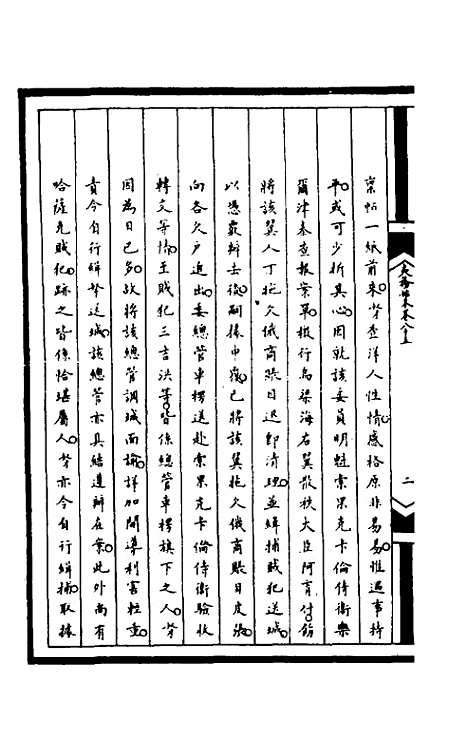 稟帖一紙前來等查洋人性情感格原非易易惟遇事持
平或可少折其心因就該委員明魁索果克卡倫侍衛樂
爾津泰查報案單檄行烏梁海右翼散秩大臣阿育付飭
將該翼人丁拖欠俄商賬目迅即清理並緝捕賊犯送城
以憑嚴辦去後嗣據申覆已將該翼拖欠俄商賬目皮張
向各欠戶追出委總管車楞送赴索果克卡倫侍衛驗收
轉交等情至賊犯三吉洪等皆係總管車楞旗下之人等
因為日已多故將該總管調城面諭詳加開導利害輕重
責令自行緝拏送城該總管亦具結遵辦在案此外尚有
哈薩克賊犯跡之皆係恰堪屬人等亦令自行緝捕取據
二